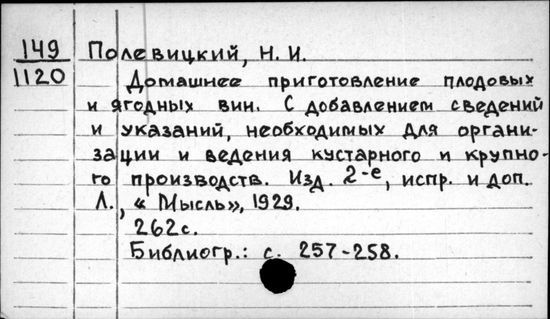 149 Полевицкий, Н. И.
1120 Домашнее приготовление плодовых
и ягодных вин. С добавлением сведений
и указаний, необходимых для органи-
зации и ведения кустарного и крупно-
го производств. Изд. 2-е, испр. и доп.
Л., «Мысль», 1929.
262с.
Библиогр.: с. 257-258.